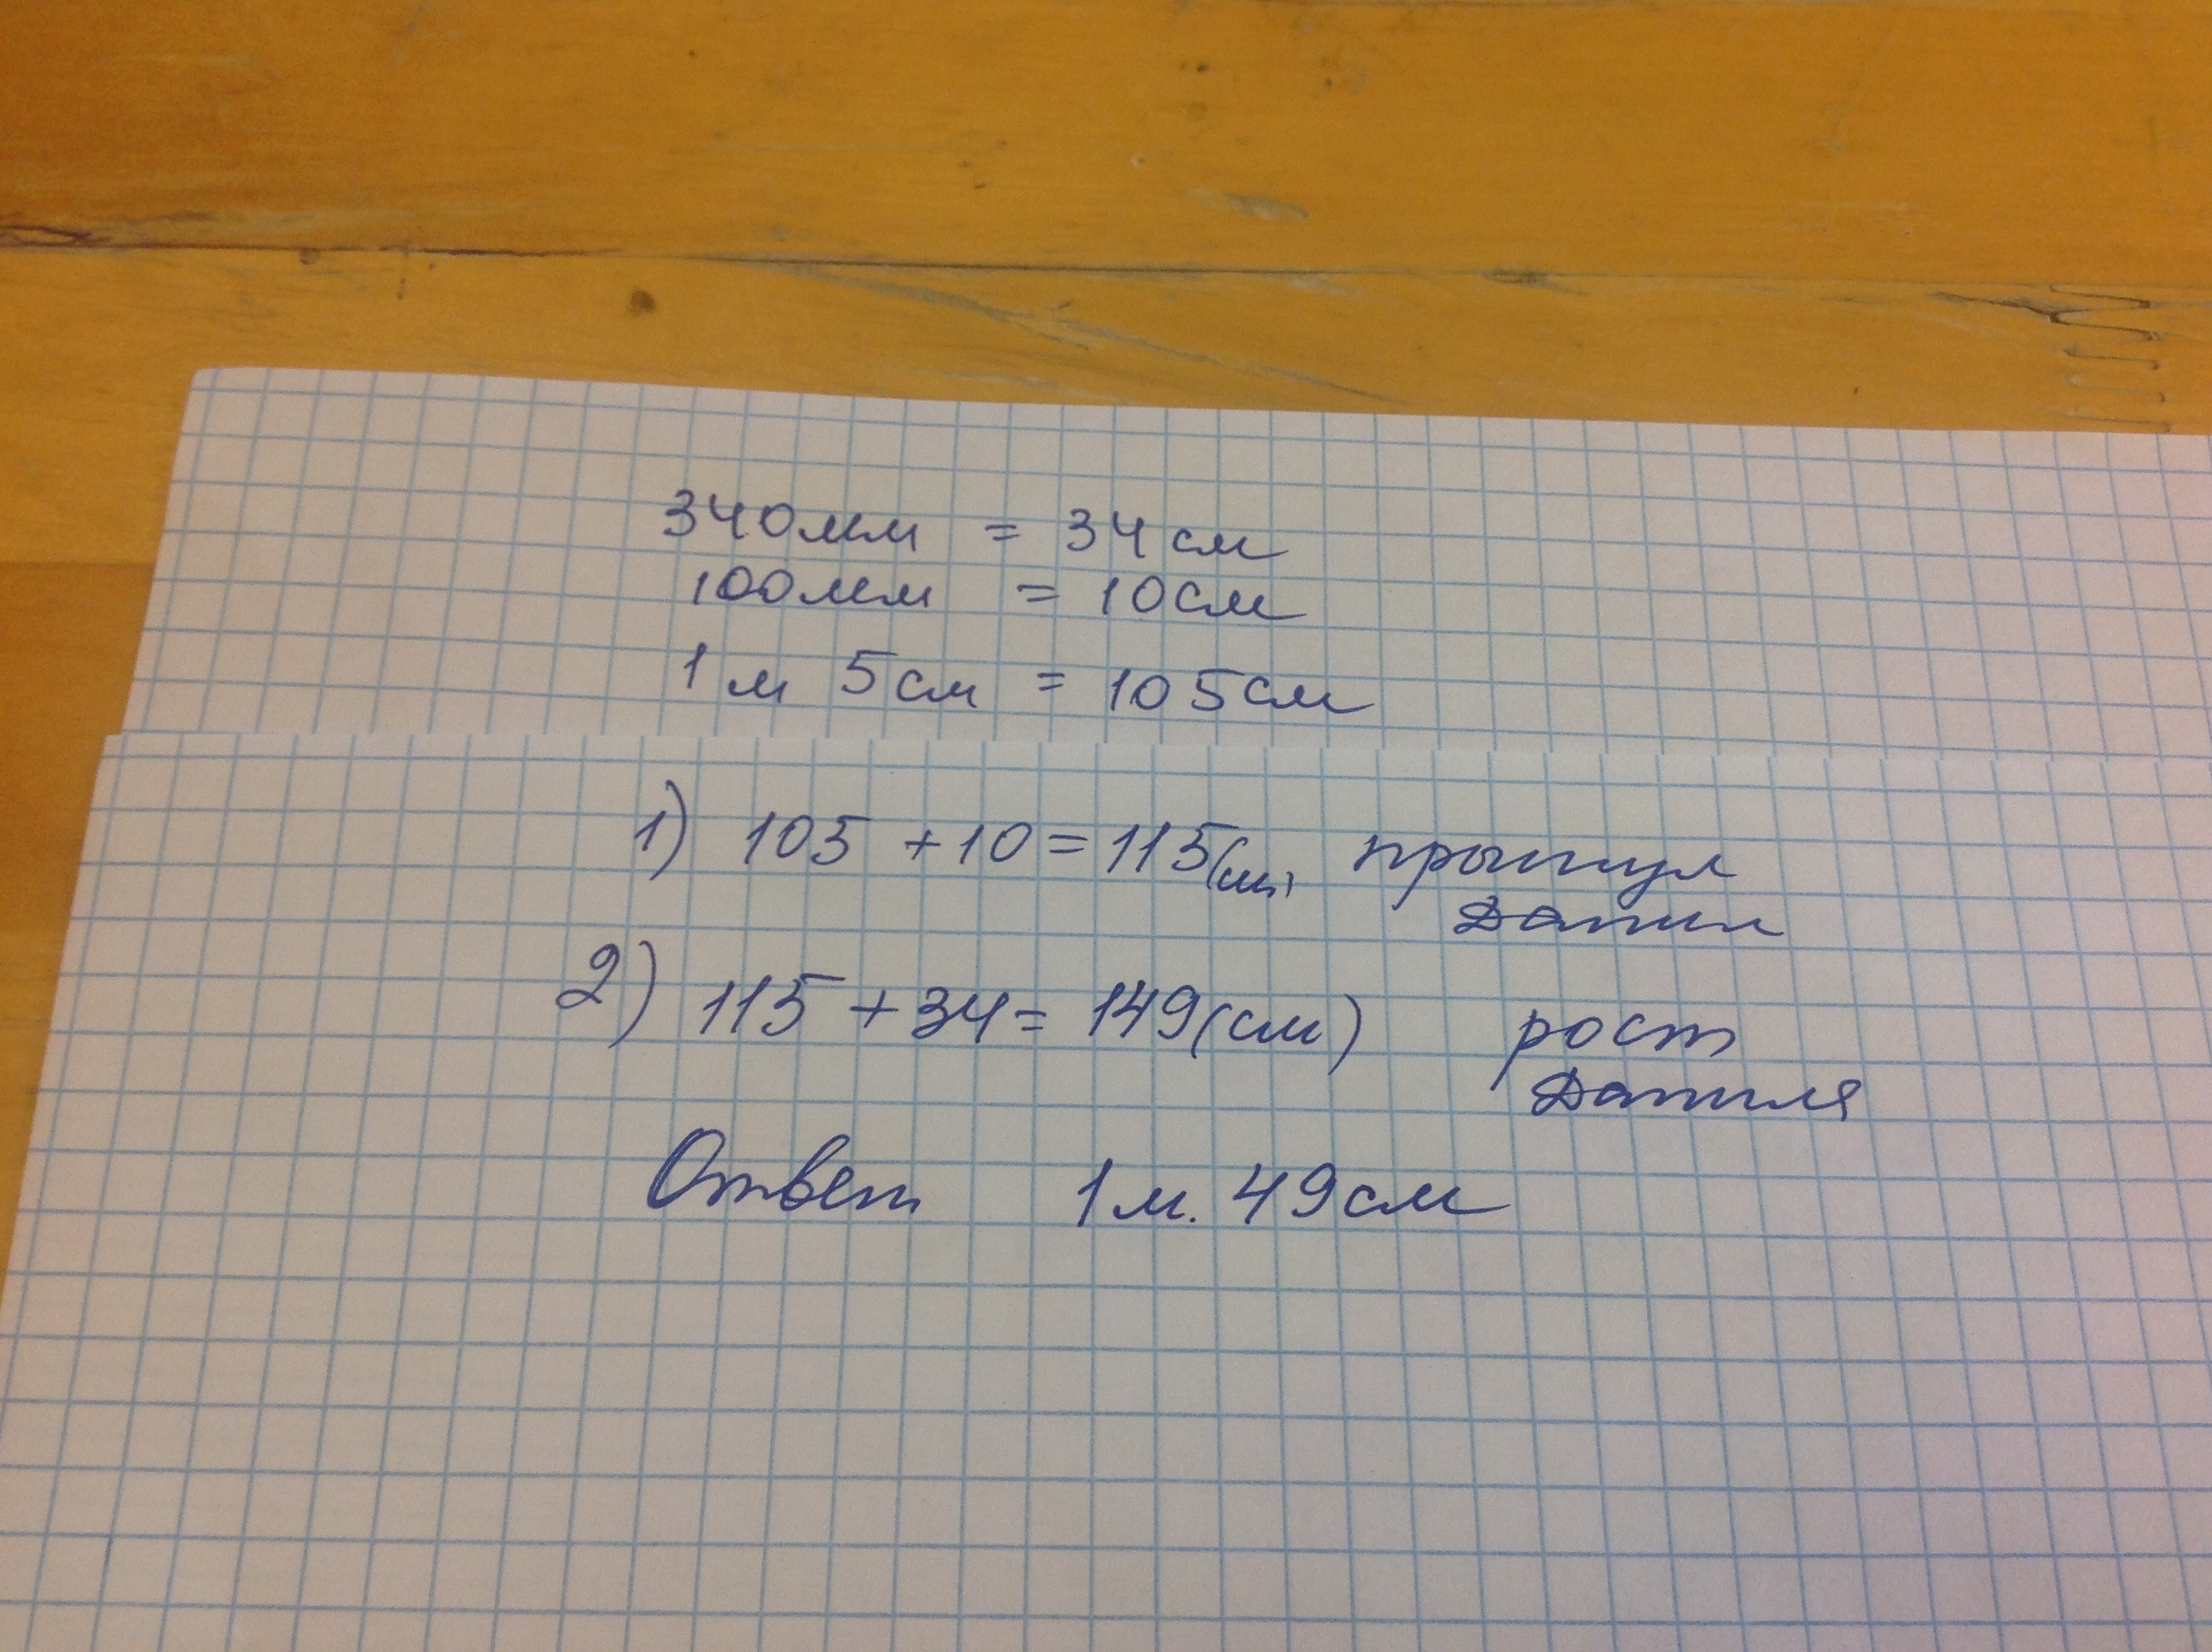 340мм = 34см
100мм = 10см
1м 5см = 105см
1) 105 + 10 = 115(см) прыгнул
Данил
2) 115 + 34 = 149(см) рост
Данила
Ответ 1м. 49см